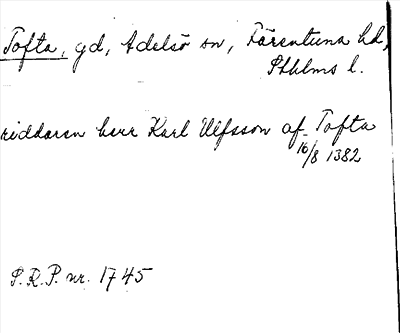 Tofta, gd, Adelsö sn, Färentuna hd,
Sthlms l.
riddaren herr Karl Ulfsson af Tofta
16/8 1382
S.R.P. nr. 1745